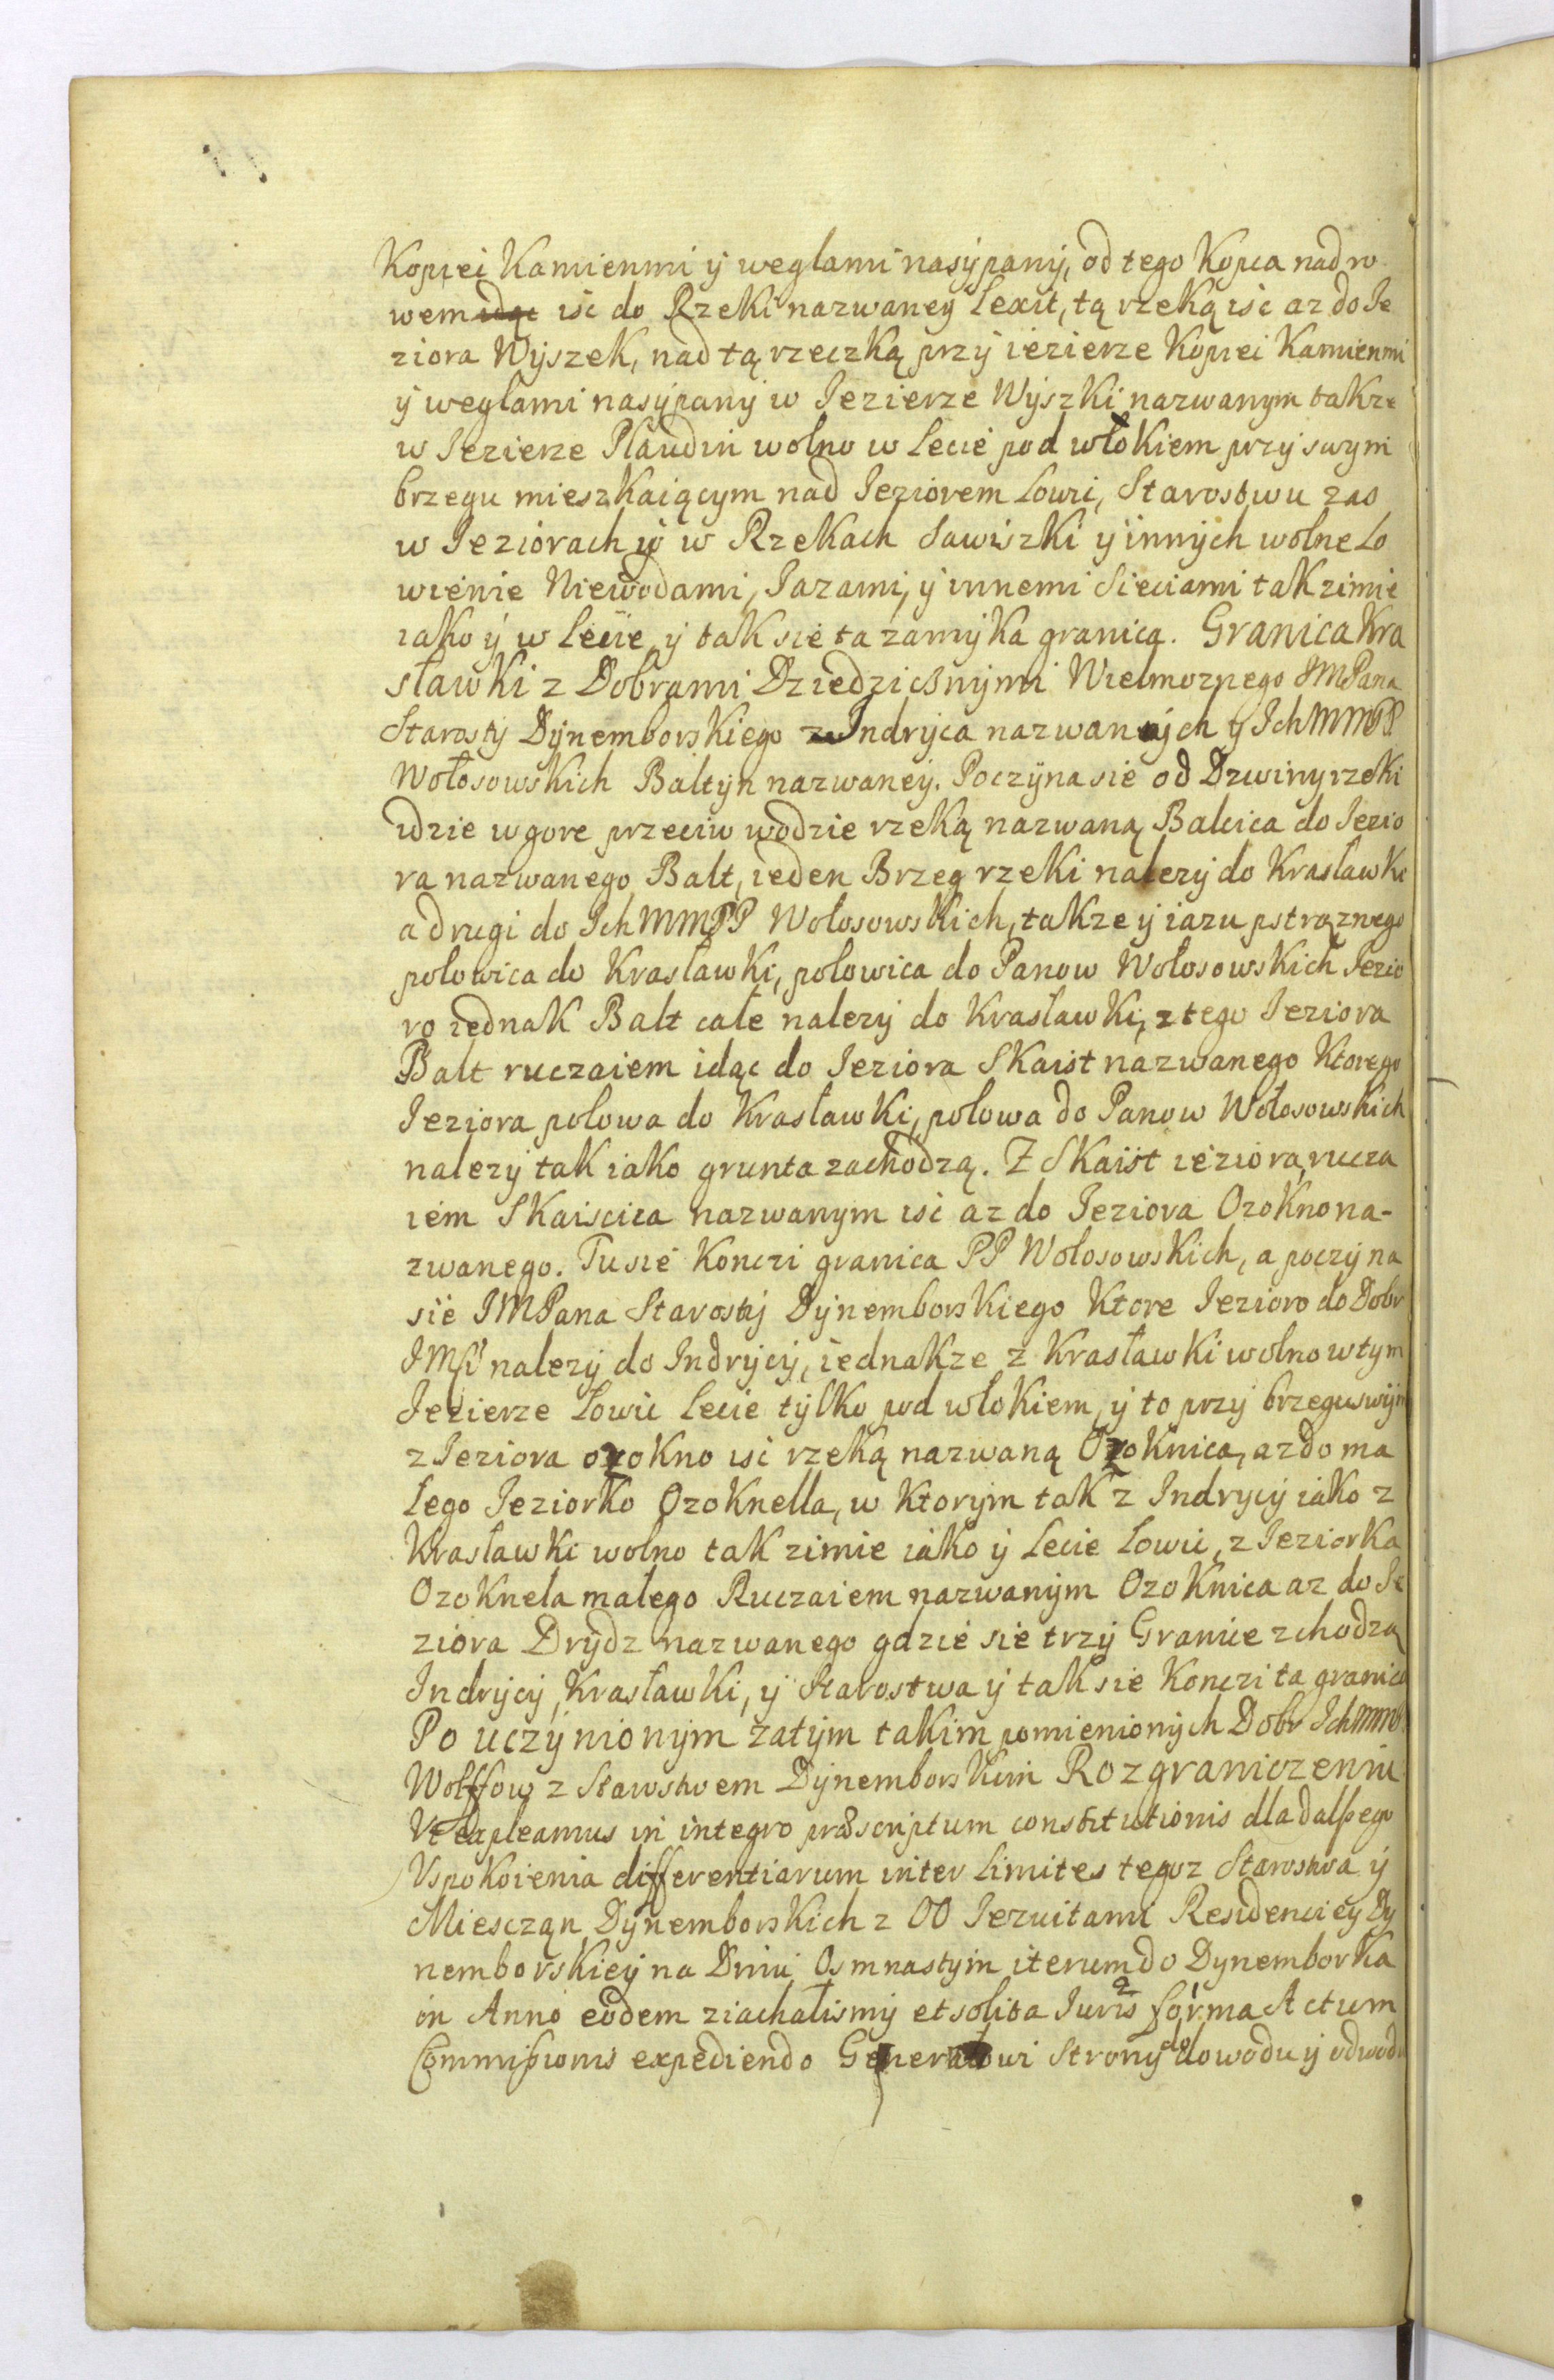 Kopiei Kamienmi ÿ weglami nasÿpanÿ, od tego Kopca nad ro
wem idąc isc do Rzeki nazwaneÿ Lexit, tą rzeką isc az do Je
ziora Wÿszek, nad tą rzeczką przÿ iezierze Kopiei Kamienmi
ÿ weglami nasÿpanÿ w Jezierze Wÿszki nazwanym takze
w Jezierze Plaudin wolno w Lecie pod włokiem przÿ swym
brzegu mieszkaiącym nad Jeziorem Lowic, Starostwu zas
w Jeziorach ÿ w Rzekach Sawiszki ÿ innÿch wolne Lo
wienie Niewodami, Jazami, ÿ innemi Sieciami tak zimie
iako ÿ w Lecie ÿ tak sie ta zamÿka granica. Granica Kra
sławki z Dobrami Dziedzicznÿmi Wielmoznego JMPana
Starostÿ Dÿnemborskiego z Indrÿca nazwanÿch ÿ Ich MMPP
Wołosowskich Baltÿn nazwaneÿ. Poczÿna sie od Dzwiny rzeki
idzie w gore przeciw wodzie rzeką nazwaną Balcica do Jezio
ra nazwanego Balt, ieden Brzeg rzeki nalezÿ do Krasławki
a drugi do Ich MMPP Wołosowskich, takze ÿ iazu pstrąznego
połowica do Krasławki, połowica do Panow Wołosowskich Jezio
ro iednak Balt całe nalezÿ do Krasławki, z tego Jeziora
Balt ruczaiem idąc do Jeziora Skaist nazwanego Ktorego
Jeziora połowa do Krasławki, połowa do Panow Wołosowskich
nalezÿ tak iako grunta zachodzą. Z Skaist ieziora rucza
iem Skaiscica nazwanym isc az do Jeziora Ozokno na-
zwanego. Tu sie Konczi granica PP Wołosowskich, a poczÿna
sie JMPana Starostÿ Dÿnemborskiego Ktore Jezioro do Dobr
JMP nalezÿ do Indrÿcÿ, iednakze z Krasławki wolno w tym
Jezierze Lowic Lecie tÿlko pod włokiem, ÿ to przÿ brzegu swÿm
z Jeziora ozokno isc rzeką nazwaną Ozoknica, az do ma
łego Jeziorko Ozoknella, w Ktorÿm tak z Indrycÿ iako z
Krasławki wolno tak zimie iako ÿ Lecie Lowic, z Jeziorka
Ozoknela małego Ruczaiem nazwanÿm Ozoknica az do Je
ziora Drÿdz nazwanego gdzie sie trzÿ Granice zchodzą
Indrÿcÿ, Krasławki, ÿ Starostwa ÿ tak sie Konczi ta granica
Po uczÿnionÿm zatÿm takim pomienionÿch Dobr Ich MMP
Wolffow z Starostwem Dÿnemborskim Rozgraniczeniu
Vt expleamus in integro præscriptum constitutionis dla dalßego
Vspokoienia differentiarum inter Limites tegoz Starostwa ÿ
Mieszczan Dÿnemborskich z OO Jezuitami Residenciey Dÿ
nemborskieÿ na Dniu Osmnastÿm iterum do Dynemborka
in Anno eodem ziachalismÿ et solita Iuris forma Actum
Commißionis expediendo Generałowi Stronÿ do dowodu ÿ odwodu